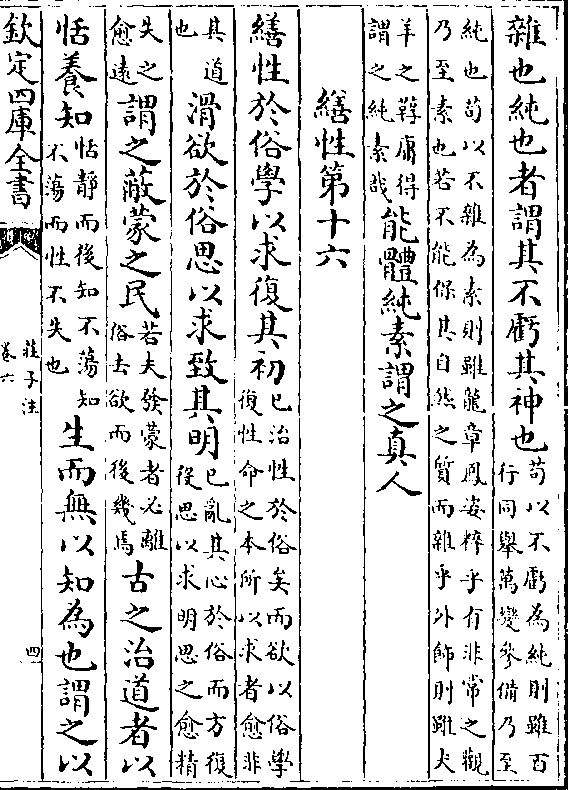 雜也純也者謂其不虧其神也苟以不虧為純則雖百行同舉萬變參備乃至
純也苟以不雜為素則雖龍章鳳姿倬乎有非常之觀乃至素也若不能保其自然之質而雜乎外飾則雖犬
羊之鞟庸得謂之純素哉能體純素謂之真人
繕性第十六
繕性於俗學以求復其初已治性於俗矣而欲以俗學復性命之本所以求者愈非
其道也滑欲於俗思以求致其明已亂其心於俗而方復役思以求明思之愈精
失之愈遠謂之蔽蒙之民若夫發蒙者必離俗去欲而後幾焉古之治道者以
恬養知恬靜而後知不蕩知不蕩而性不失也生而無以知為也謂之以
欽定四庫全書
莊子注
卷六
四